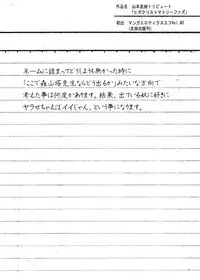 作品名 山本直樹トリビュート
「ヒポクリストマトリーファズ」
初出 マンガエロティクスエフVol.80
(太田出版刊)
ネームに詰まってどうしようも無かった時に
「ここで森山塔先生ならどう出るか」みたいな方向で
考えた事は何度かあります。結果、出ている奴に好きに
ヤラせちゃえばイイじゃん、という事になります。